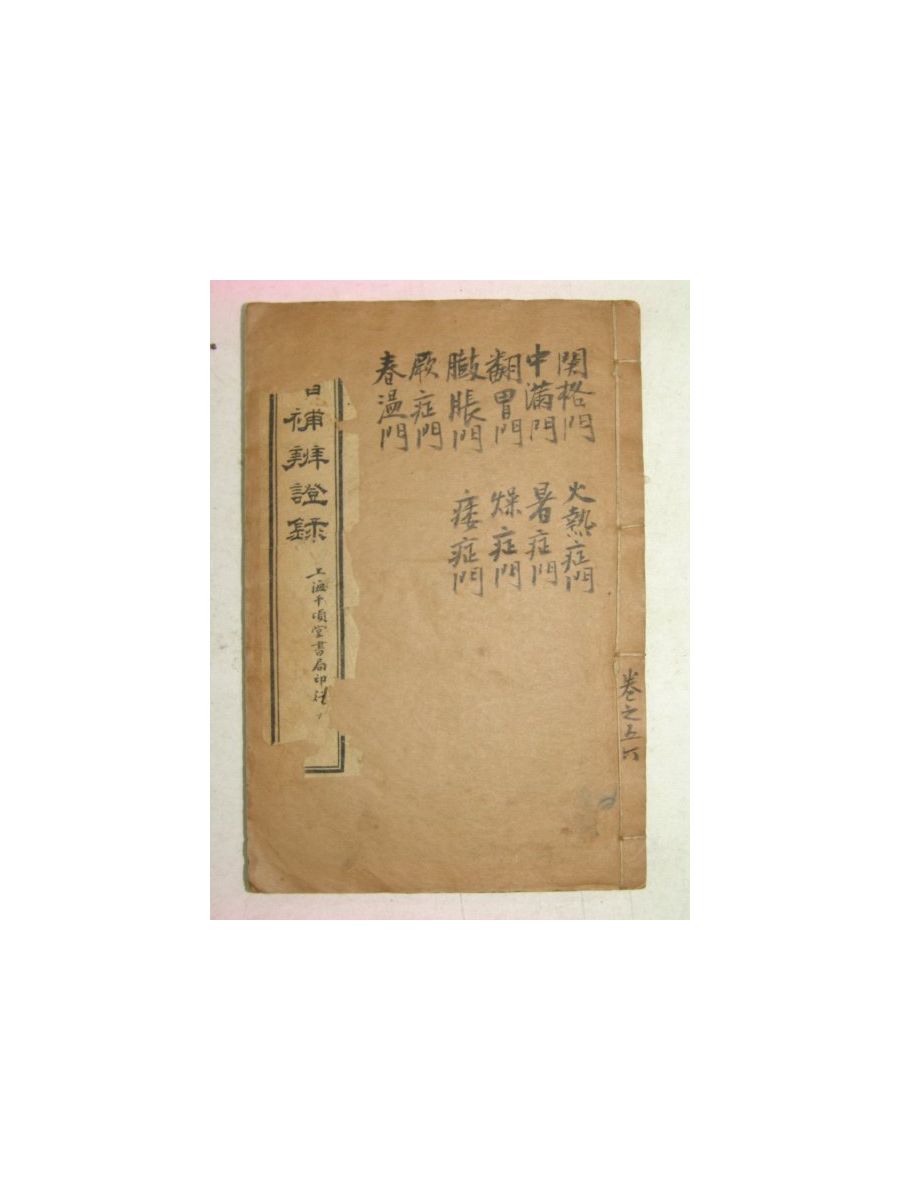 卷之五六
関格門
中満門
翻胃門
臌脹門
厥症門
春温門
火熱症門
暑症門
燥症門
痿症門
補辨證錄
上海千頃堂書局印